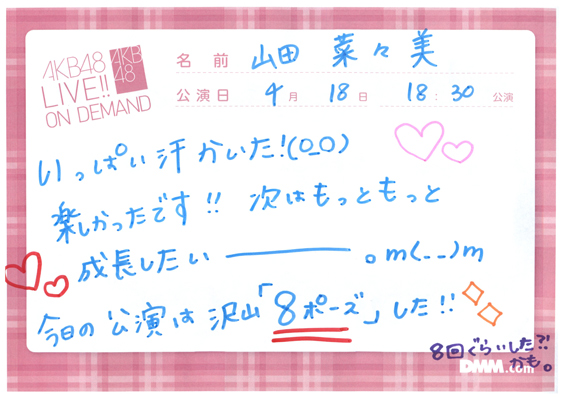 AKB48
LIVE!!
ON DEMAND
AKB
48
名前 山田 菜々美
公演日 4月 18日 18:30 公演
いっぱい汗かいた!(O_O)
楽しかったです!! 次はもっともっと
成長したい ――――。m(_ _)m
今日の公演は沢山「8ポーズ」した!!
8回ぐらいした?!
かも。
DMM.com